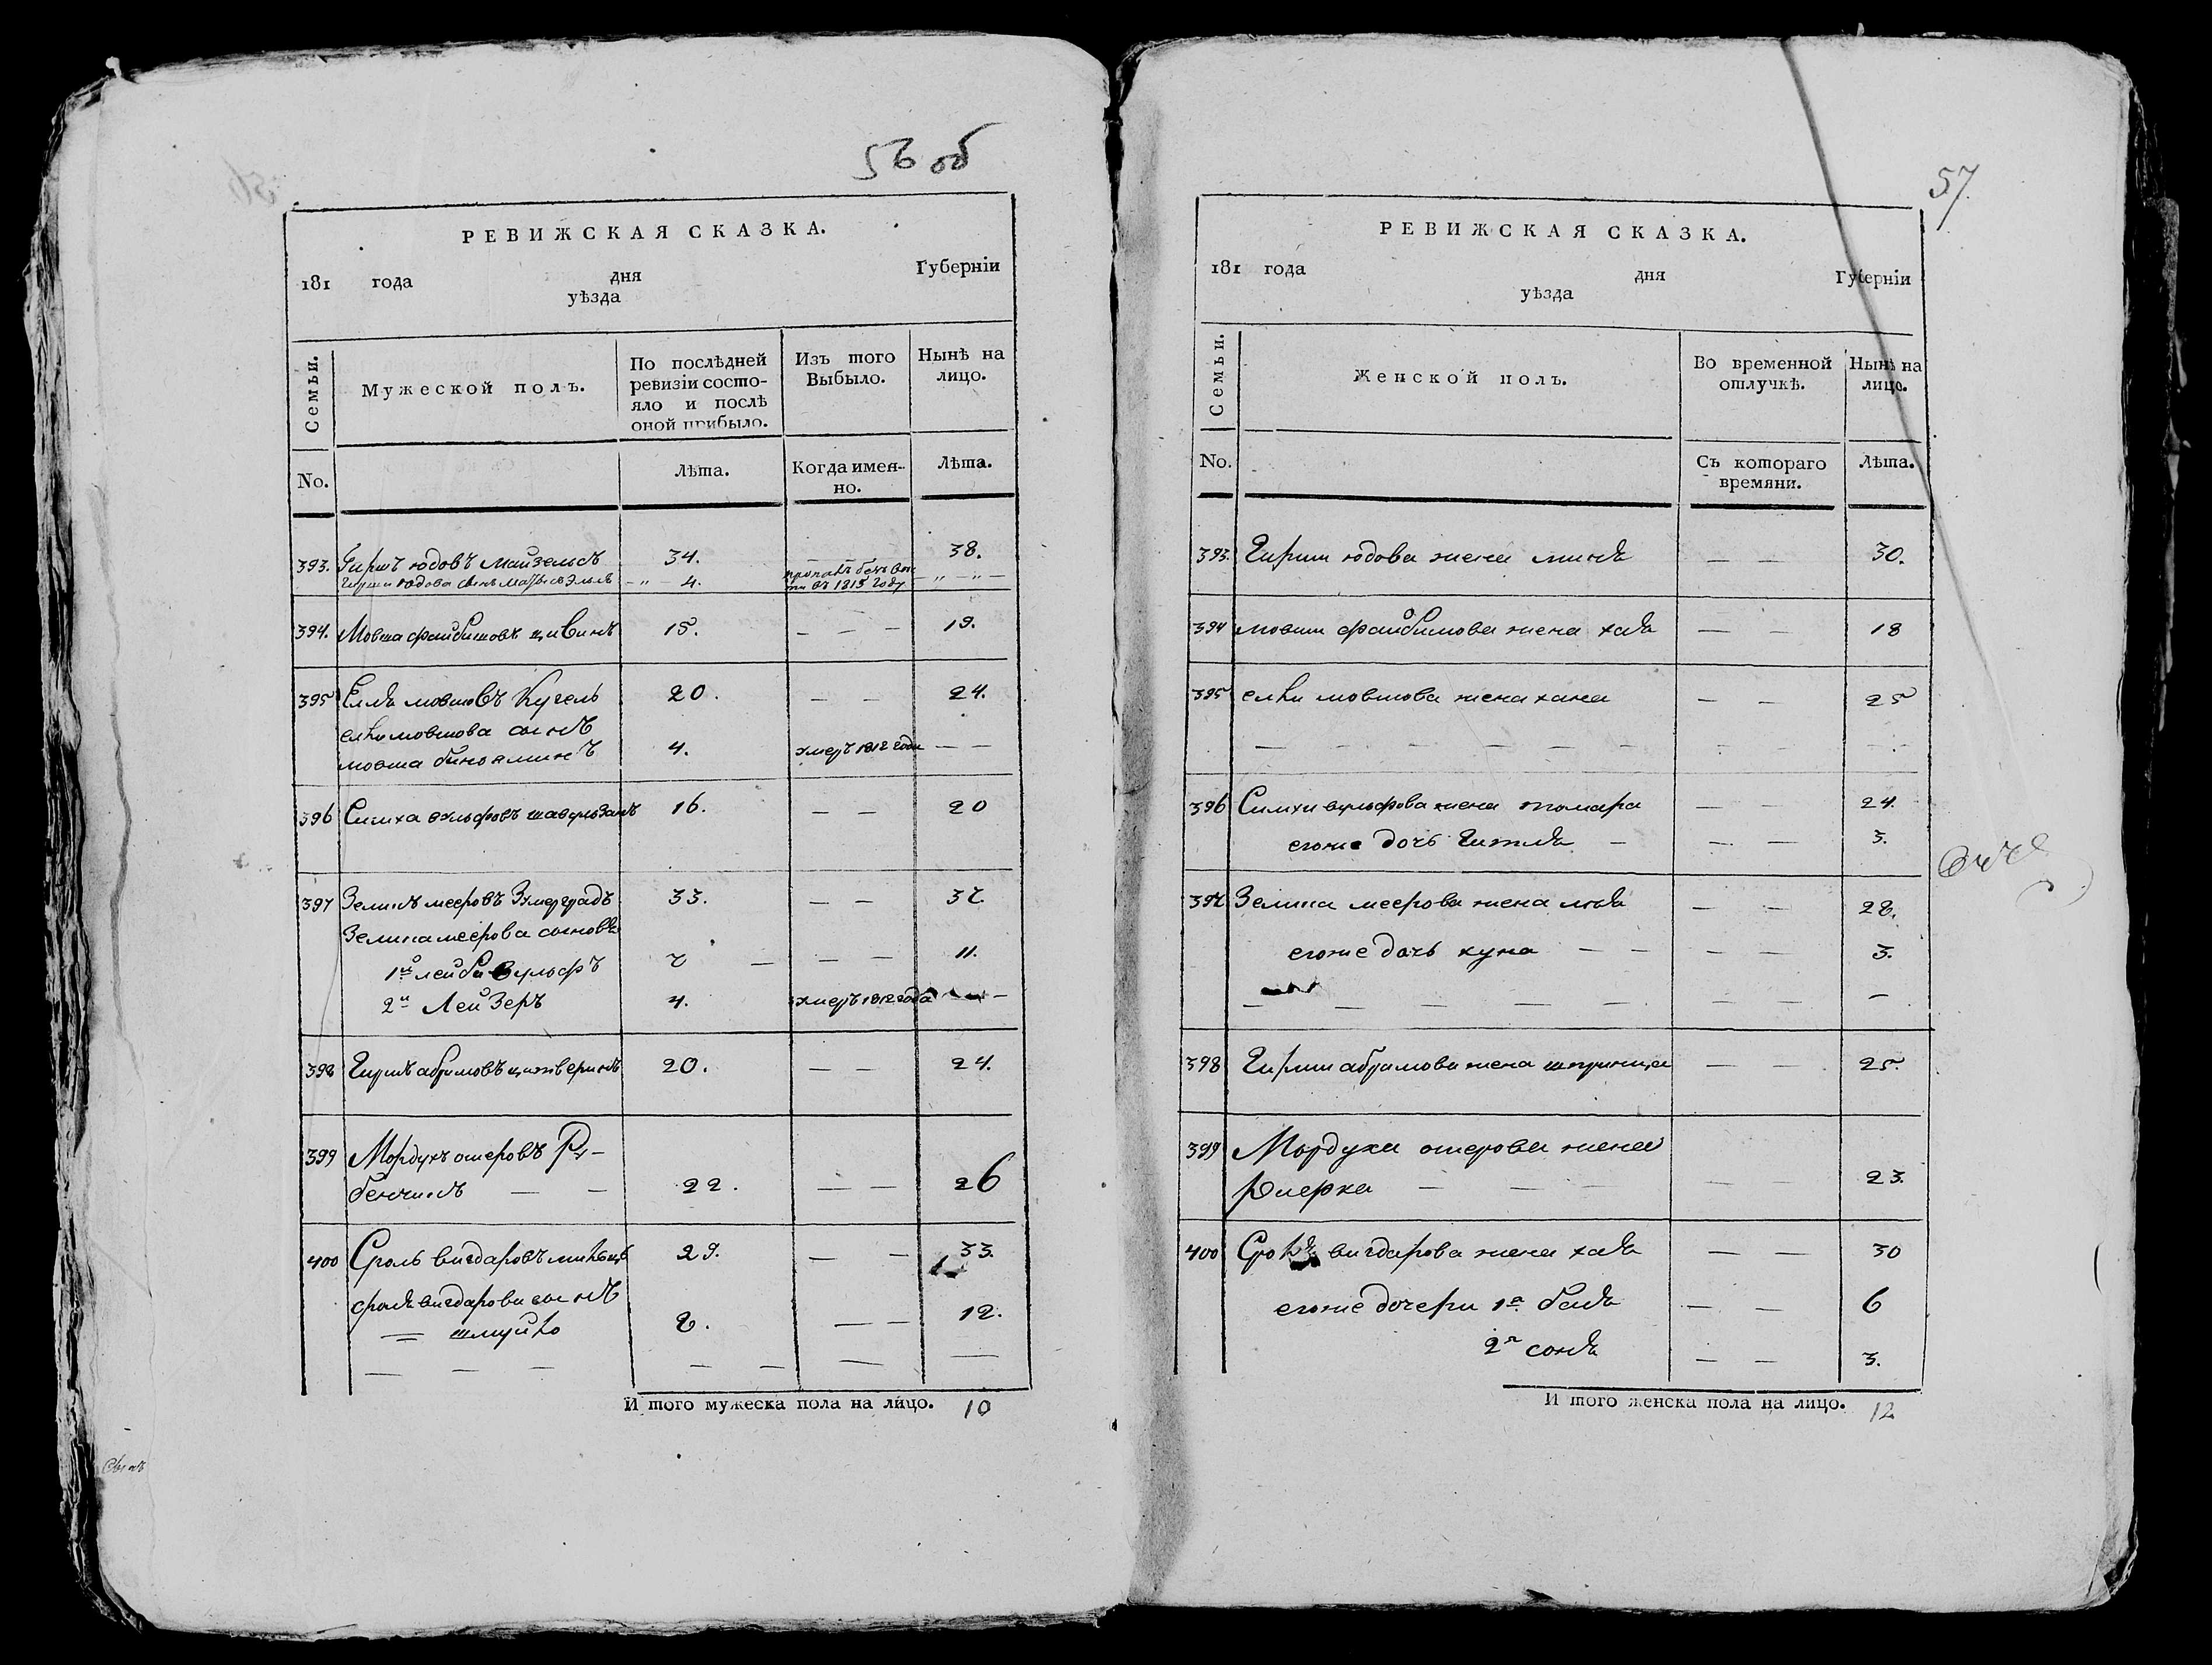 56 об
РЕВИЖСКАЯ СКАЗКА.
181 года дня Губерніи
уѣзда
Семьи. Мужеской полъ. По послѣдней ревизіи состо- Изъ того Нынѣ на
яло и послѣ оной прибыло. Выбыло. лицо.
No. Лѣта. Когда имен- Лѣта.
но.
393. Гиршъ юдовъ майзельсъ 34. — — 38.
Гирши юдова сынъ — " — 4. пропалъ безъ — " — " —
въ 1815 году
394. Мовша файбишовъ цивинъ 15. — — — 19.
395 Елья мовшовъ Кугель 20. — — 24.
ельки мовшова сынъ
мовша бинояминъ 4. умеръ 1812 года — —
396 Симха вульфовъ 16. — — 20
397 Зелигъ мееровъ 33. — — 37.
Зелига меерова сыновья
1й лейба вульфъ 7 — — — 11.
2й Лейзеръ 4. умеръ 1812 года —
398 Гиршъ абрамовъ 20. — — 24.
399 Мордухъ ошеровъ Ру-
бенчикъ — — 22. — — 26
400 Сроль вигдоровъ 29. — — 33.
сроля вигдорова сынъ
— шмуйло 8. — — 12.
— — — — — — —
И того мужеска пола на лицо. 10
57.
РЕВИЖСКАЯ СКАЗКА.
181 года дня Губерніи
уѣзда
Семьи. Женской полъ. Во временной Нынѣ на
отлучкѣ. лицо.
No. Съ котораго Лѣта.
времяни.
393. Гирши юдова жена миня — — 30.
394 мовши файбишова жена хая — — 18
395 ельки мовшова жена хана — — 25
— — — — — — — — — —
396 Симхи вульфова жена тамара — — 24.
егоже дочь Гитля — — — 3.
397 Зелига меерова жена — — 28.
егоже дочь куна — — — — 3.
— — — — — — — —
398 Гирши абрамова жена шпринца — — 25.
399 Мордуха ошерова жена
— — — — 23.
400 вигдорова жена хая — — 30
егоже дочери 1я беля — — 6
2я соня — — 3.
И того женска пола на лицо. 12